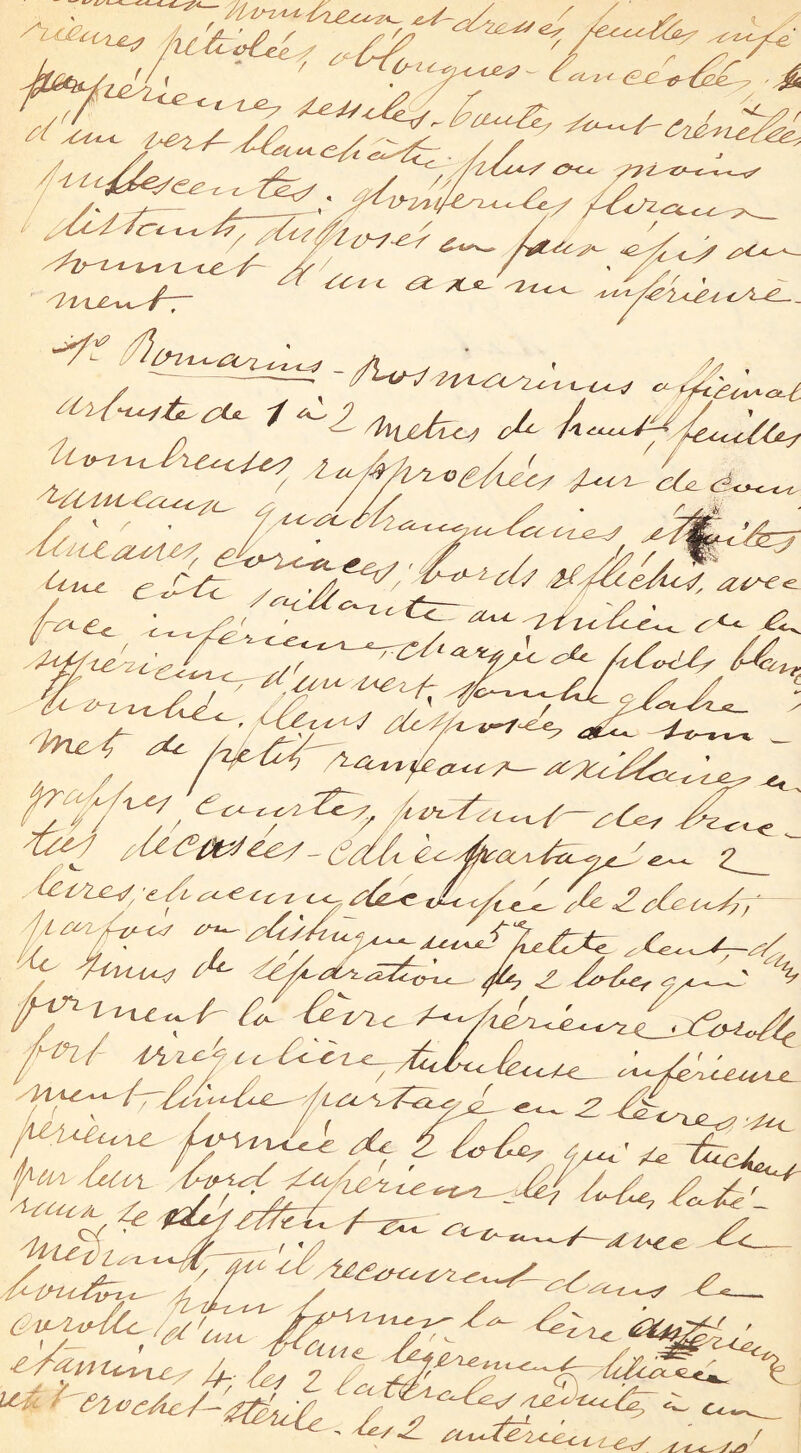 nombreux, et dressés, feuilles infé
rieures pétiolées, oblongues-lancéolées,
supérieures sessiles. toutes sont crénelées
d'un vert blanchâtre, plus ou moins
pubescentes. glomérules floraux
distants, disposés en faux épis au
sommet d'un axe nu inférieure-
ment.
Romarins - Rosmarinus officinal
arbuste de 1 à 2 metres de haut, feuilles
nombreuses, rapprochées sur de
rameaux quadrangulaires, étroites
linéaires, coriaces; bords réfléchis, avec
une côte saillante au milieu de la
face inférieure, chargée de poils blancs
supérieure, d'un vert sombre glabre
bombée. fleurs disposées au som-
met de petits rameaux axillaires en
grappes courtes, portant des brac-
tées décusées - Calice partagé en 2
lèvres; chacune découpée de 2 dents;
parfois on distingue une 5e petite dent, dans
le sinus de séparation des 2 lobes qui
forment la lèvre supérieure. Corolle
fort irrégulière, tubuleuse inférieure
ment, limbe partagé en 2 lèvres; su
périeure formée de 2 lobes qui se tuchent
par leur bord supérieur. les lobes laté-
raux, se déjettent en avant avec le
mediant, qu'il recouvrent dans le
bouton pour former la lèvre antérieure
corolle d'un blanc légèrement liliacée
étamines 4; les 2 latérales réduites à un
petit crochet stérile. les 2 antérieures insé